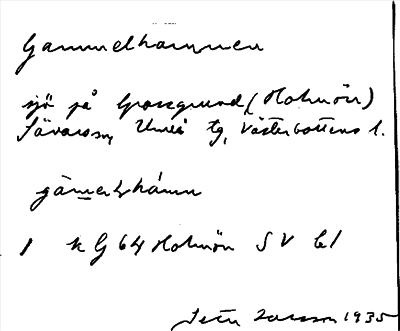 Gammelhamnen
sjö på Grossgrund (Holmön)
Sävar sn, Umeå tg, Västerbottens l.
gàmelhámn
1 k G 64 Holmön SV bl
Larsson 1935